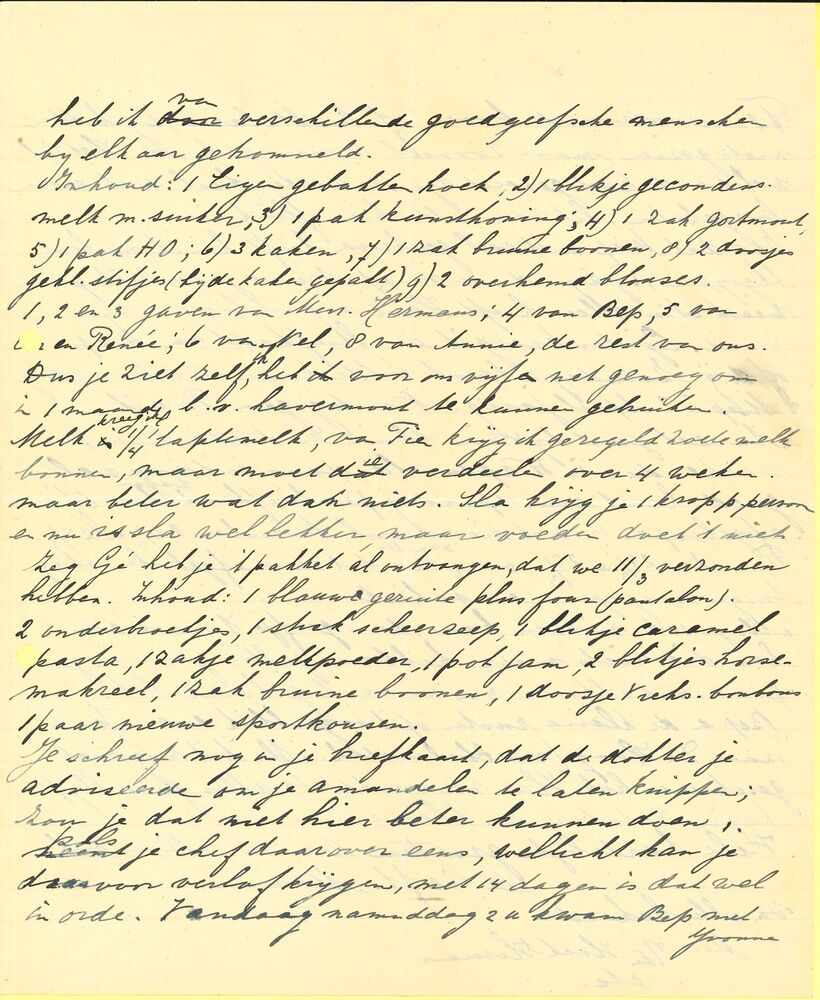 heb ik door van verschillende goedgeefsche menschen
by elkaar getrommeld.
Inhoud: 1 eigen gebakken koek, 2) 1 blikje gecondens.
melk m. suiker, 3) 1 pak kunsthoning; 4) 1 zak gortmout,
5) 1 pak HO; 6) 3 kaken, 7) 1 zak bruine boonen, 8) 2 doosjes
gekl. stifjes (bij de kaken gepakt) 9) 2 overhemd blouses.
1, 2 en 3 gaven van Mevr. Hermans; 4 van Bep, 5 van
en Renée; 6 van Nel, 8 van Annie, de rest van ons.
Dus je ziet zelf, het is voor ons vijfen net genoeg om
in 1 maand b.v. havermout te kunnen gebruiken.
Melk is kreeg ik 1/4 taptemelk, van Fien krijg ik geregeld zoete melk
bonnen, maar moet dat die verdeelen over 4 weken.
maar beter wat dan niets. Sla krijg je 1 krop p. persoon
en nu is sla wel lekker, maar voeden doet 't niet.
Zeg Gé heb je 't pakket al ontvangen, dat we 11/3 verzonden
hebben. Inhoud: 1 blauwe geruite plusfour (pantalon).
2 onderbroekjes, 1 stuk scheerzeep, 1 blikje caramel
pasta, 1 zakje melkpoeder, 1 pot jam, 2 blikjes horse-
makreel, 1 zak bruine boonen, 1 doosje Vicks-bonbons
1 paar nieuwe sportkousen.
Je schreef nog in je briefkaart, dat de dokter je
adviseerde om je amandelen te laten knippen;
zou je dat niet hier beter kunnen doen,
pols je chef daarover eens, wellicht kan je
daarvoor verlof krijgen, met 14 dagen is dat wel
in orde. Vandaag namiddag 2 u kwam Bep met
Yvonne